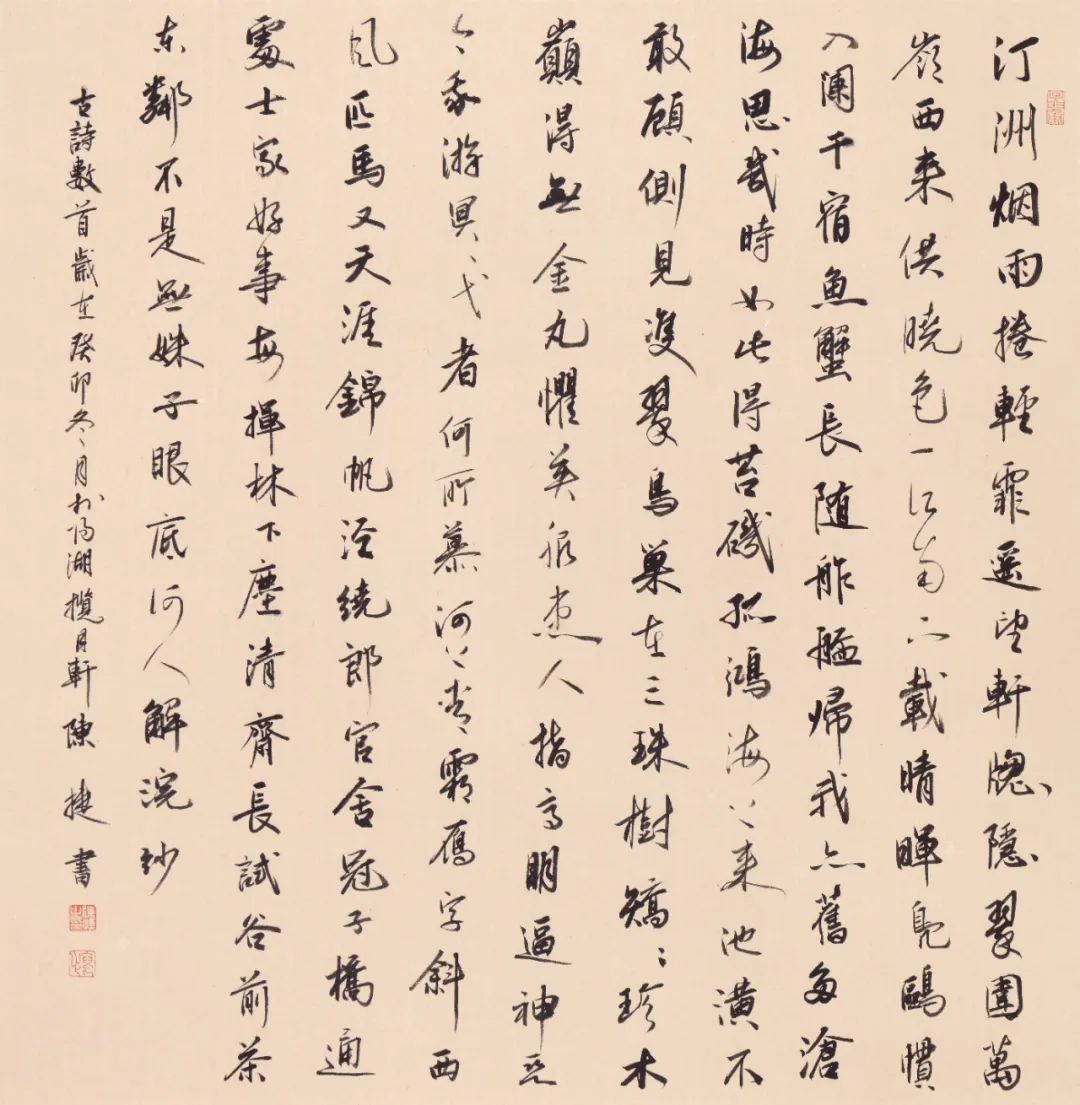 汀洲烟雨捲輕霏遥望軒牕隱翠圍萬
嶺西来供曉色一江南下載晴暉鳧鷗慣
入闌干宿魚蟹長随舴艋歸我亦舊多滄
海思幾時如此得苔磯孤鴻海上来池潢不
敢顧側見雙翠鳥巢在三珠樹矯〻珍木
巔得無金丸懼美服患人指高明逼神惡
今我游冥〻弋者何所慕河上霜雁字斜西
風匹馬又天涯錦帆涇繞郎官舍冠子橋通
處士家好事每揮林下麈清齋長試谷前茶
东鄰不是無姝子眼底何人解浣紗
古詩數首歲在癸卯冬月於陽湖攬月軒陳捷書